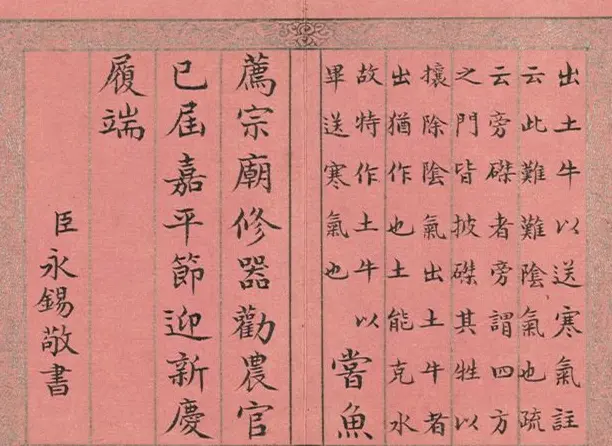 出土牛以送寒氣註
云此難難陰氣也疏
云旁磔者旁謂四方
之門皆披磔其牲以
攘除陰氣出土牛者
出猶作也土能克水
故特作土牛以
畢送寒氣也
嘗魚
薦宗廟修器勸農官
已屆嘉平節迎新慶
履端
臣永錫敬書